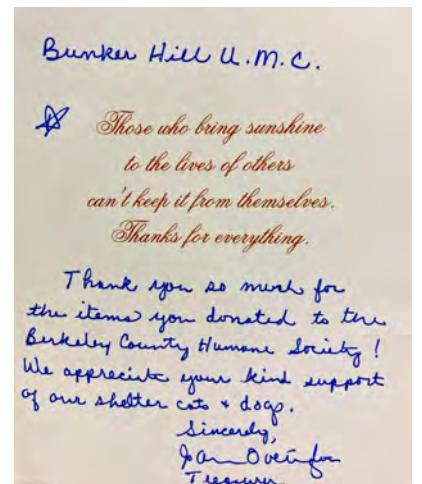 Bunker Hill U.M.C.
Those who bring sunshine
to the lives of others
can't keep it from themselves.
Thanks for everything.
Thank you so much for
the items you donated to the
Berkeley County Humane Society!
We appreciate your kind support
of our shelter cats + dogs.
Sincerely,
Treasurer